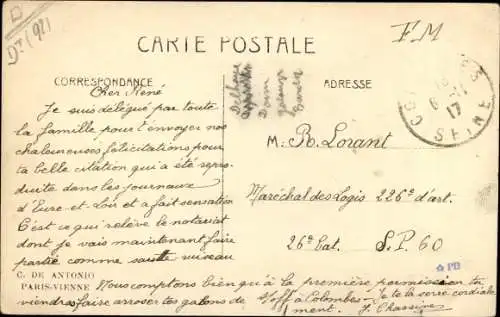 D
Dt (92)
FM
CARTE POSTALE
CORRESPONDANCE
ADRESSE
Cher René
Je suis délégué par toute
la famille pour t'envoyer nos
chaleureuses félicitations pour
ta belle citation qui a été repro-
duite dans les journaux
d'Eure-et-Loir et a fait sensation
C'est ce qui relève le notariat
dont je vais maintenant faire
partie comme saute ruisseau
Nous comptons bien qu'à la première permission tu
viendras faire arroser tes galons de S/off à Colombes - Je te la serre cordiale
ment. J. Chassine
M. R. Lorant
Maréchal des Logis 226e d'art.
26e Bat. S.P. 60
17
SEINE
C. DE ANTONIO
PARIS-VIENNE
PB